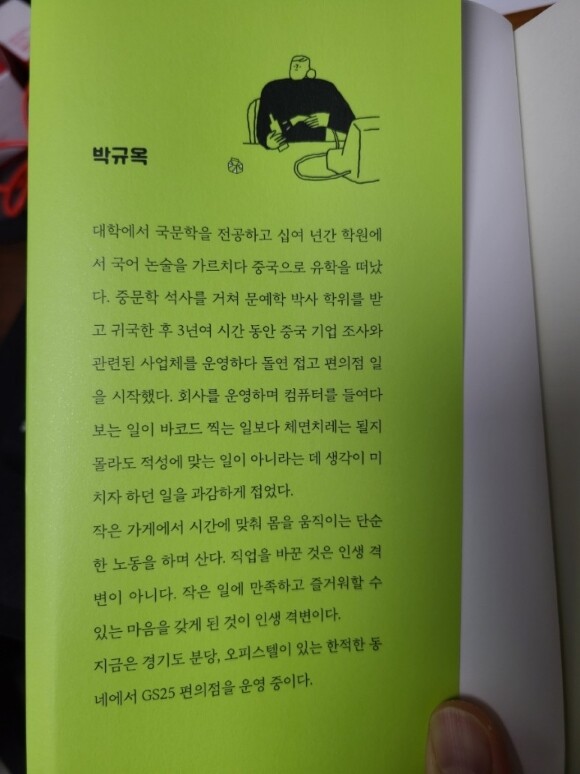 박규옥
대학에서 국문학을 전공하고 십여 년간 학원에
서 국어 논술을 가르치다 중국으로 유학을 떠났
다. 중문학 석사를 거쳐 문예학 박사 학위를 받
고 귀국한 후 3년여 시간 동안 중국 기업 조사와
관련된 사업체를 운영하다 돌연 접고 편의점 일
을 시작했다. 회사를 운영하며 컴퓨터를 들여다
보는 일이 바코드 찍는 일보다 체면치레는 될지
몰라도 적성에 맞는 일이 아니라는 데 생각이 미
치자 하던 일을 과감하게 접었다.
작은 가게에서 시간에 맞춰 몸을 움직이는 단순
한 노동을 하며 산다. 직업을 바꾼 것은 인생 격
변이 아니다. 작은 일에 만족하고 즐거워할 수
있는 마음을 갖게 된 것이 인생 격변이다.
지금은 경기도 분당, 오피스텔이 있는 한적한 동
네에서 GS25 편의점을 운영 중이다.